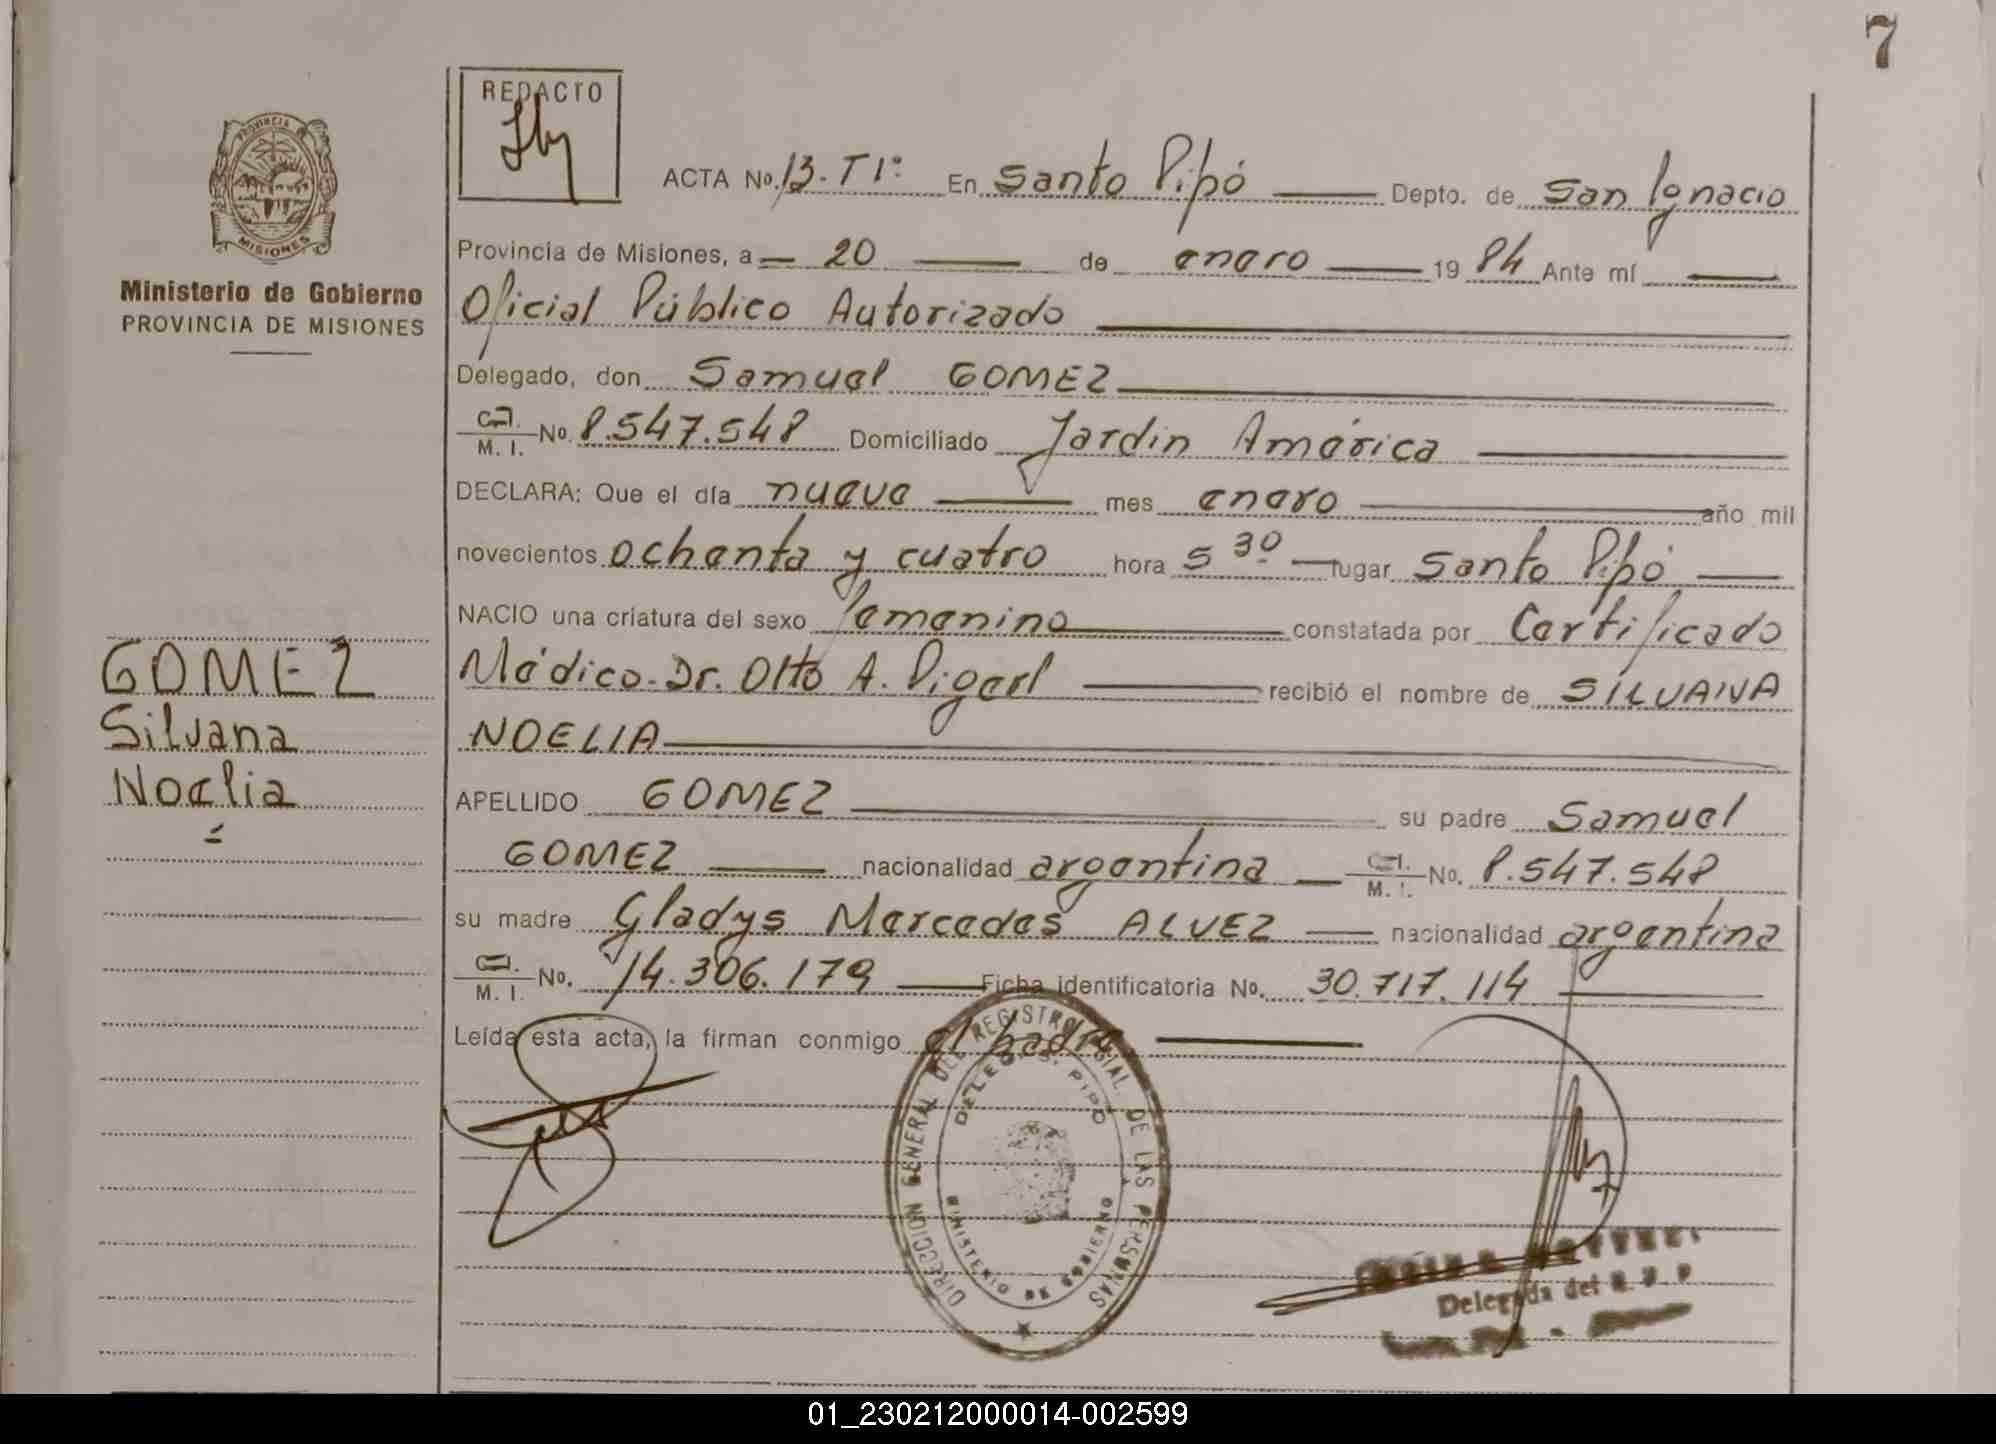 7
REDACTO
PROVINCIA DE
MISIONES
Ministerio de Gobierno
PROVINCIA DE MISIONES
ACTA No. 13. T 1º En Santo Pipó Depto. de San Ignacio
Provincia de Misiones, a 20 de enero 19 84 Ante mí
Oficial Público Autorizado
Delegado, don Samuel GOMEZ
C.I. M. I. No. 8.547.548 Domiciliado Jardin América
DECLARA: Que el día nueve mes enero año mil
novecientos ochenta y cuatro hora 5 30 lugar Santo Pipó
NACIO una criatura del sexo femenino constatada por Certificado
Médico. Dr. Otto A. Pigerl recibió el nombre de SILVANA
NOELIA
APELLIDO GOMEZ su padre Samuel
GOMEZ nacionalidad argentina C.I. M. I. No. 8.547.548
su madre Gladys Mercedes ALVEZ nacionalidad argentina
C.I. M. I. No. 14.306.179 Ficha identificatoria No. 30.717.114
Leída esta acta, la firman conmigo el padre
GOMEZ
Silvana
Noelia
DIRECCION GENERAL DEL REGISTRO DE LAS PERSONAS
DELEG. S. PIPO
MINISTERIO DE GOBIERNO
Delegada del R. P.
01_230212000014-002599